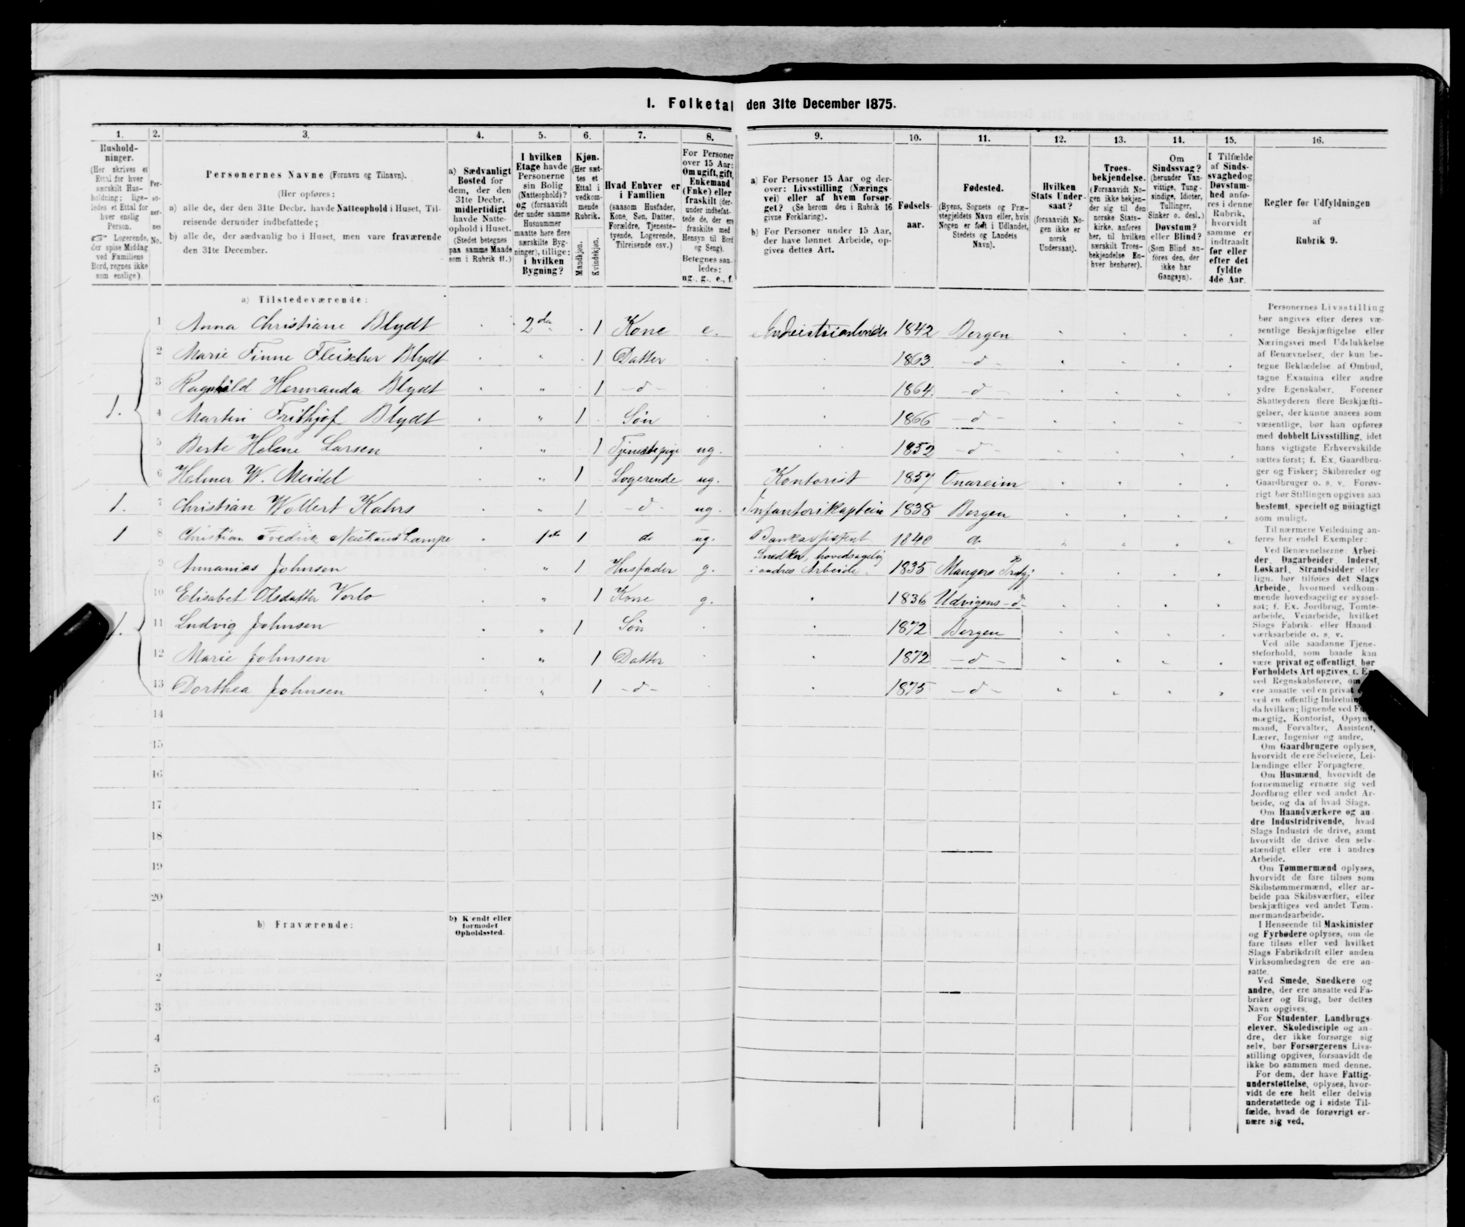 I. Folketal den 31te December 1875.
1. 2. 3. 4. 5. 6. 7. 8. 9. 10. 11. 12. 13. 14. 15. 16.
Hushold-
ninger.
(Her skrives et
Ettal for hver
særskilt Hus-
holdning; lige-
ledes et Ettal for
hver enslig
Person.
Logerende,
der spise Middag
ved Familiens
Bord, regnes ikke
som enslige).
Per-
soner-
nes
No.
Personernes Navne (Fornavn og Tilnavn).
(Her opføres:
a) alle de, der den 31te Decbr. havde Natteophold i Huset, Til-
reisende derunder indbefattede;
b) alle de, der sædvanlig bo i Huset, men vare fraværende
den 31te December.
a) Sædvanligt
Bosted for
dem, der den
31te Decbr.
midlertidigt
havde Natte-
ophold i Huset.
(Stedet betegnes
paa samme Maade
som i Rubrik 11.)
I hvilken
Etage havde
Personerne
sin Bolig
(Natteophold)?
og (forsaavidt
der under samme
Husnummer
maatte høre flere
særskilte Byg-
ninger), tillige:
i hvilken
Bygning?
Kjøn.
(Her sæt-
tes et
Ettal i
vedkom-
mende
Rubrik.
Mandkjøn.
Kvindekjøn.
Hvad Enhver er
i Familien
(saasom Husfader,
Kone, Søn, Datter,
Forældre, Tjeneste-
tyende, Logerende,
Tilreisende osv.)
For Personer
over 15 Aar:
Om ugift, gift,
Enkemand
(Enke) eller
fraskilt (der-
under indbefat-
tede de, der ere
fraskilte med
Hensyn til Bord
og Seng).
Betegnes saa-
ledes:
ug., g., e., f.
a) For Personer 15 Aar og der-
over: Livsstilling (Nærings
vei) eller af hvem forsør-
get? (Se herom den i Rubrik 16
givne Forklaring).
b) For Personer under 15 Aar,
der have lønnet Arbeide, op-
gives dettes Art.
Fødsels-
aar.
Fødested.
(Byens, Sognets og Præ-
stegjeldets Navn eller, hvis
Nogen er født i Udlandet,
Stedets og Landets
Navn).
Hvilken
Stats Under-
saat?
(forsaavidt No-
gen ikke er
norsk
Undersaat).
Troes-
bekjendelse.
(Forsaavidt No-
gen ikke bekjen-
der sig til den
norske Stats-
kirke, anføres
her, til hvilken
særskilt Troes-
bekjendelse En-
hver henhører).
Om
Sindssvag?
(herunder Van-
vittige, Tung-
sindige, Idioter,
Tullinger,
Sinker o. desl.)
Døvstum?
eller Blind?
(Som Blind an-
føres den, der
ikke har
Gangsyn).
I Tilfælde
af Sinds-
svaghed og
Døvstum-
hed anfø-
res i denne
Rubrik,
hvorvidt
samme er
indtraadt
før eller
efter det
fyldte
4de Aar.
Regler for Udfyldningen
af
Rubrik 9.
a) Tilstedeværende:
1 Anna Christiane Blydt 2den 1 Kone e. 1842 Bergen
2 Marie Finne Fleischer Blydt " 1 Datter 1863 - d -
3 Ragnhild Hermanda Blydt " 1 - d - 1864 - d -
1. 4 Martin Frithjof Blydt " 1 Søn 1866 - d -
5 Berte Helene Larsen " 1 Tjenestepige ug. 1852 - d -
6 Helmer W. Meidel " 1 Logerende ug. Kontorist 1857
1. 7 Christian Wollert Kahrs " 1 - d - ug. Infanterikaptein 1838 Bergen
1 8 Christian Fredrik Neuhaus Lampe 1ste 1 do ug. Bankassistent 1840 do
9 Annanias Johnsen " 1 Husfader g. Snedker, hovedsagelig i andres Arbeide 1835 Mangers Prstgj
10 Elisabet Olsdatter " 1 Kone g. " 1836 Udvigens - d -
1. 11 Ludvig Johnsen " 1 Søn 1872 Bergen
12 Marie Johnsen " 1 Datter 1872 - d -
13 Dorthea Johnsen " 1 - d - 1875 - d -
14
15
16
17
18
19
20
b) Fraværende:
b) Kjendt eller
formodet
Opholdssted.
1
2
3
4
5
6
Personernes Livsstilling
bør angives efter deres væ-
sentlige Beskjæftigelse eller
Næringsvei med Udelukkelse
af Benævnelser, der kun be-
tegne Beklædelse af Ombud,
tagne Examina eller andre
ydre Egenskaber. Forener
Skatteyderen flere Beskjæfti-
gelser, der kunne ansees som
væsentlige, bør han opføres
med dobbelt Livsstilling, idet
hans vigtigste Erhvervskilde
sættes først; f. Ex. Gaardbru-
ger og Fisker; Skibsreder og
Gaardbruger o. s. v. Forøv-
rigt bør Stillingen opgives saa
bestemt, specielt og nøiagtigt
som muligt.
Til nærmere Veiledning an-
føres her endel Exempler:
Ved Benævnelserne: Arbei-
der, Dagarbeider, Inderst,
Løskarl, Strandsidder eller
lign. bør tilføies det Slags
Arbeide, hvormed vedkom-
mende hovedsagelig er syssel-
sat; f. Ex. Jordbrug, Tomte-
arbeide, Veiarbeide, hvilket
Slags Fabrik- eller Haand-
værksarbeide o. s. v.
Ved alle saadanne Tjene-
steforhold, som baade kan
være privat og offentligt, bør
Forholdets Art opgives, f. Ex.
ved Regnskabsførere, om
ere ansatte ved en privat
ved en offentlig Indretning
da hvilken; lignende ved Fuld-
mægtig, Kontorist, Opsyns-
mand, Forvalter, Assistent,
Lærer, Ingeniør og andre.
Om Gaardbrugere oplyses,
hvorvidt de ere Selveiere, Lei-
lændinge eller Forpagtere.
Om Husmænd, hvorvidt de
fornemmelig ernære sig ved
Jordbrug eller ved andet Ar-
beide, og da af hvad Slags.
Om Haandværkere og an-
dre Industridrivende, hvad
Slags Industri de drive, samt
hvorvidt de drive den selv-
stændigt eller ere i andres
Arbeide.
Om Tømmermænd oplyses,
hvorvidt de fare tilsøs som
Skibstømmermænd, eller ar-
beide paa Skibsværfter, eller
beskjæftiges ved andet Tøm-
mermandsarbeide.
I Henseende til Maskinister
og Fyrbødere oplyses, om de
fare tilsøs eller ved hvilket
Slags Fabrikdrift eller anden
Virksomhedsgren de ere an-
satte.
Ved Smede, Snedkere og
andre, der ere ansatte ved Fa-
briker og Brug, bør dettes
Navn opgives.
For Studenter, Landbrugs-
elever, Skoledisciple og an-
dre, der ikke forsørge sig
selv, bør Forsørgerens Livs-
stilling opgives, forsaavidt de
ikke bo sammen med denne.
For dem, der have Fattig-
understøttelse, oplyses, hvor-
vidt de ere helt eller delvis
understøttede og i sidste Til-
fælde, hvad de forøvrigt er-
nære sig ved.